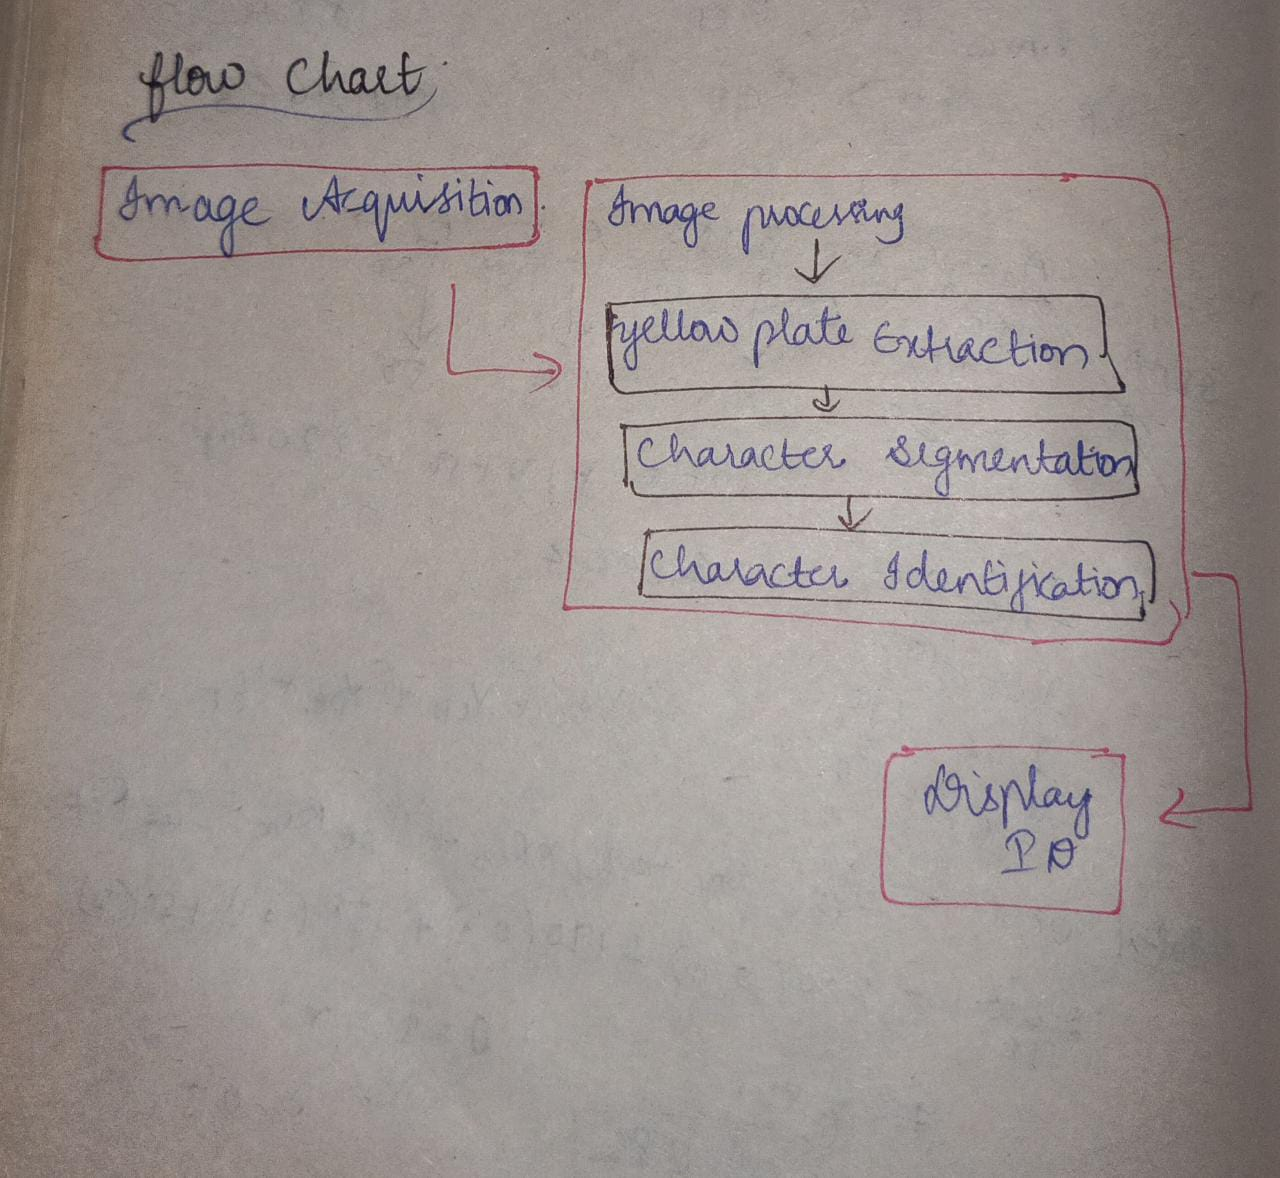 flow Chart
Image Acquisition
Image processing
yellow plate Extraction
Character Segmentation
Character Identification
Display
ID